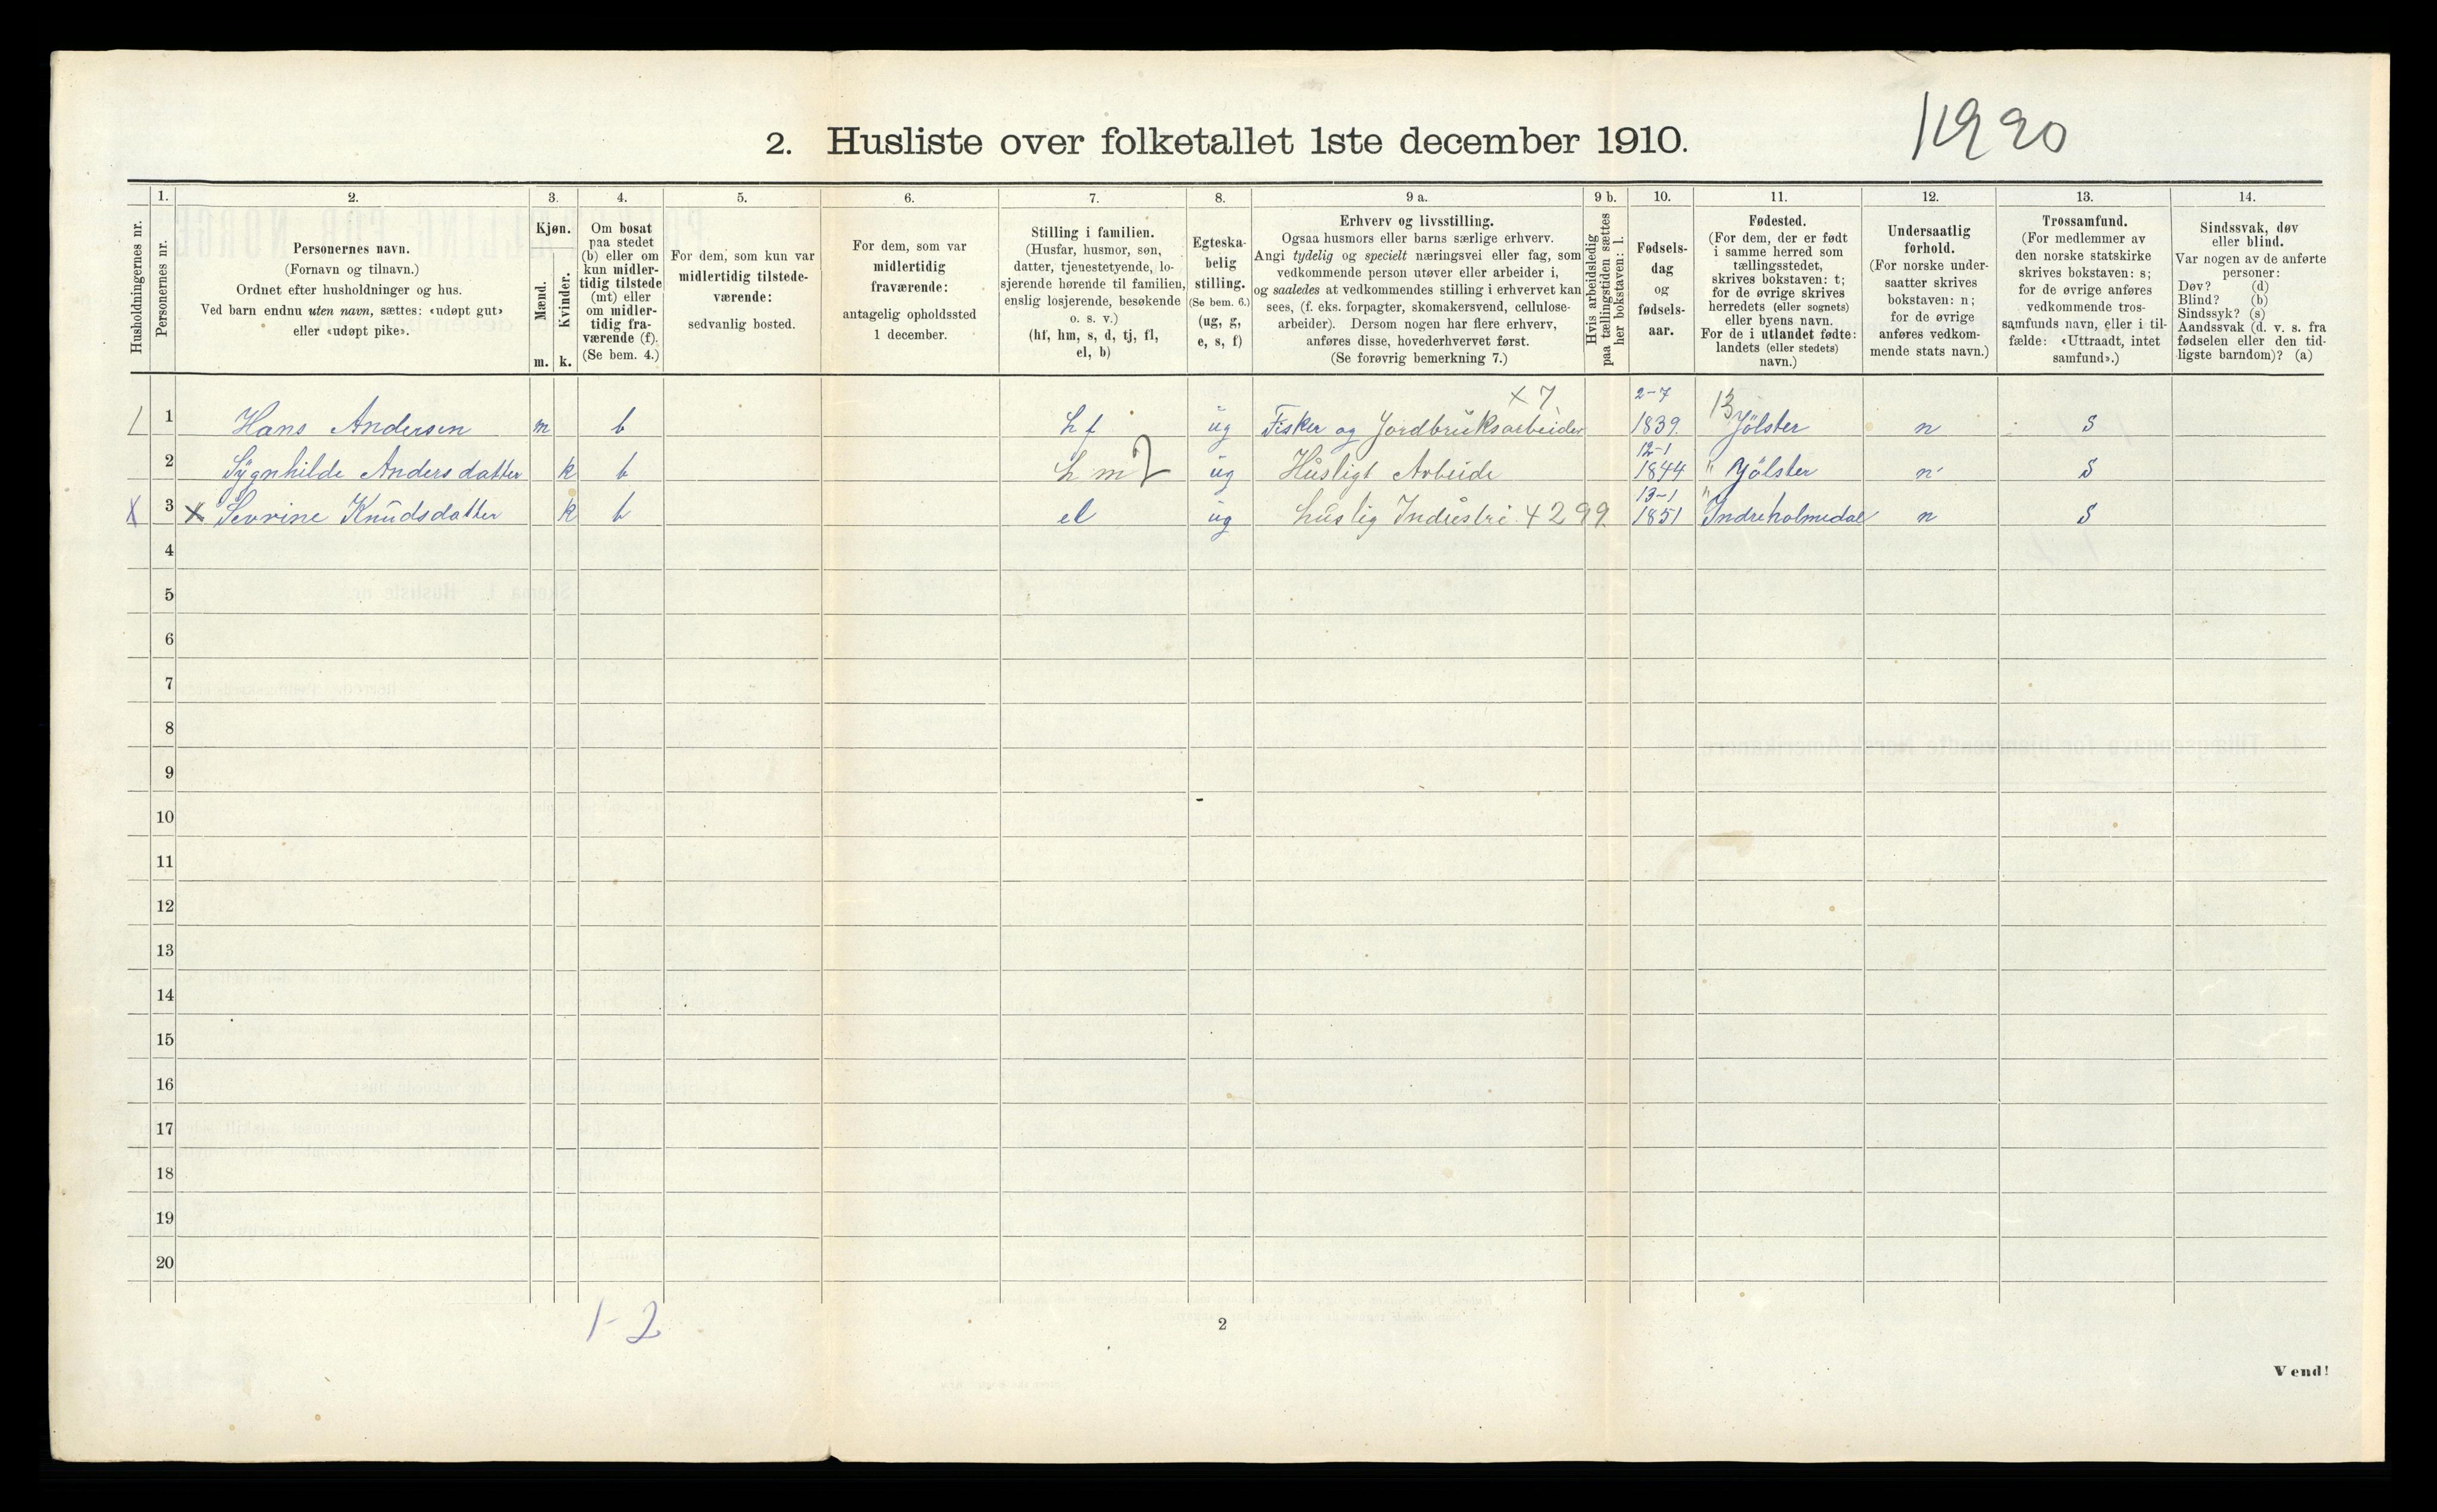 2. Husliste over folketallet 1ste december 1910.
Husholdningernes nr.
1.
Personernes nr.
2.
Personernes navn.
(Fornavn og tilnavn.)
Ordnet efter husholdninger og hus.
Ved barn endnu uten navn, sættes: «udøpt gut»
eller «udøpt pike».
3.
Kjøn.
Mænd.
Kvinder.
m. k.
4.
Om bosat
paa stedet
(b) eller om
kun midler-
tidig tilstede
(mt) eller
om midler-
tidig fra-
værende (f).
(Se bem. 4.)
5.
For dem, som kun var
midlertidig tilstede-
værende:
sedvanlig bosted.
6.
For dem, som var
midlertidig
fraværende:
antagelig opholdssted
1 december.
7.
Stilling i familien.
(Husfar, husmor, søn,
datter, tjenestetyende, lo-
sjerende hørende til familien,
enslig losjerende, besøkende
o. s. v.)
(hf, hm, s, d, tj, fl,
el, b)
8.
Egteska-
belig
stilling.
(Se bem. 6.)
(ug, g,
e, s, f)
9 a.
Erhverv og livsstilling.
Ogsaa husmors eller barns særlige erhverv.
Angi tydelig og specielt næringsvei eller fag, som
vedkommende person utøver eller arbeider i,
og saaledes at vedkommendes stilling i erhvervet kan
sees, (f. eks. forpagter, skomakersvend, cellulose-
arbeider). Dersom nogen har flere erhverv,
anføres disse, hovederhvervet først.
(Se forøvrig bemerkning 7.)
9 b.
Hvis arbeidsledig
paa tællingstiden sættes
her bokstaven: l.
10.
Fødsels-
dag
og
fødsels-
aar.
11.
Fødested.
(For dem, der er født
i samme herred som
tællingsstedet,
skrives bokstaven: t;
for de øvrige skrives
herredets (eller sognets)
eller byens navn.
For de i utlandet fødte:
landets (eller stedets)
navn.)
12.
Undersaatlig
forhold.
(For norske under-
saatter skrives
bokstaven: n;
for de øvrige
anføres vedkom-
mende stats navn.)
13.
Trossamfund.
(For medlemmer av
den norske statskirke
skrives bokstaven: s;
for de øvrige anføres
vedkommende tros-
samfunds navn, eller i til-
fælde: «Uttraadt, intet
samfund».)
14.
Sindssvak, døv
eller blind.
Var nogen av de anførte
personer:
Døv? (d)
Blind? (b)
Sindssyk? (s)
Aandssvak (d. v. s. fra
fødselen eller den tid-
ligste barndom)? (a)
x 7 2-7 13
1 Hans Andersen m b hf ug Fisker og Jordbruksarbeider 1839. Jölster n s
12-1
2 Sygnhilde Andersdatter k b hm ug Husligt Arbeide 1844 " Jölster n s
13-1 "
X 3 x Sevrine Knudsdatter k b el ug huslig Industri 4299. 1851 Indreholmedal n s
4
5
6
7
8
9
10
11
12
13
14
15
16
17
18
19
20
1-2
2
Vend!